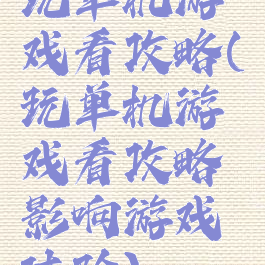 玩单机游
戏看攻略(
玩单机游
戏看攻略
影响游戏
体验)